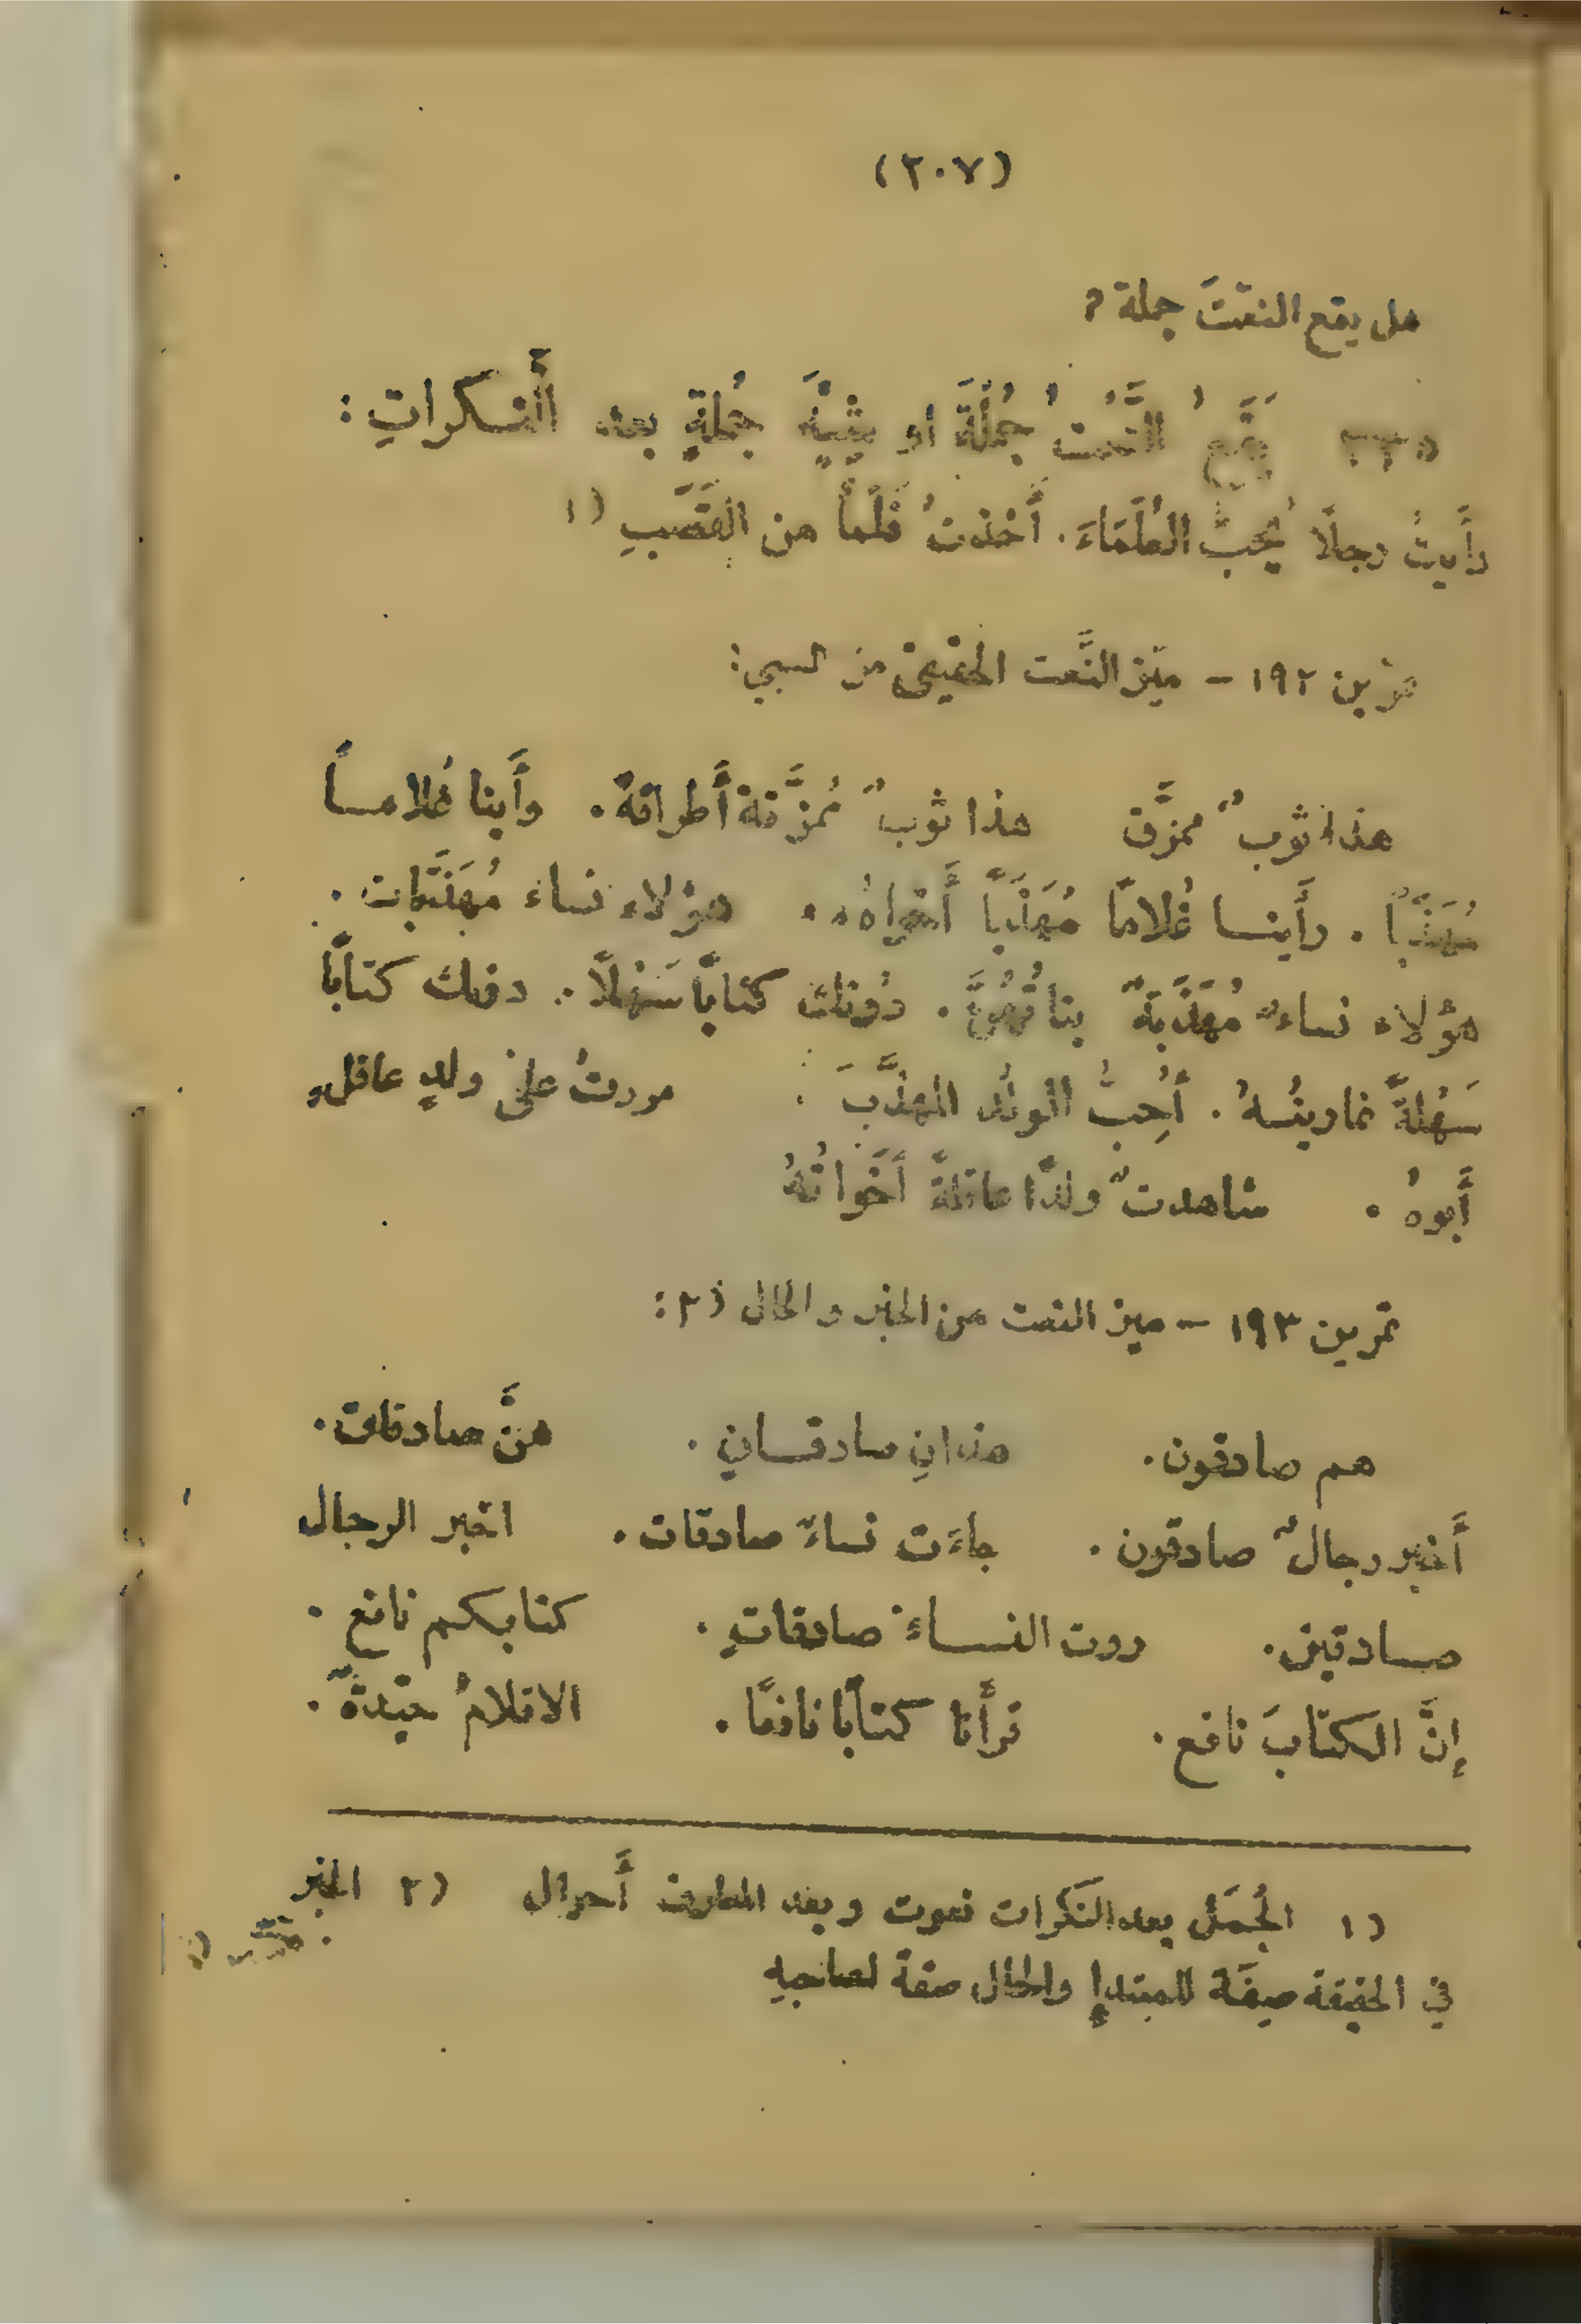 (٢٠٧)
هل يقع النعتَ جملة ؟
٢٣٥ يَقَع النَّعتُ جُملَةً او شِبْهَ جُملةٍ بعد ألنكراتِ :
رأَيتُ رجلًا يُحِبُّ العُلَمَاءَ . أَخذتُ قَلَماً من القَصَبِ (١
تمرين ١٩٢ – ميّز النَّعت الحقيقيّ من السببي :
هذا ثوبٌ ممزَّق هذا ثوبٌ مُمزَّقة أَطرافهُ . رأَينا غُلاماً
مُهَذَّباً . رأَينا غُلامًا مُهَذَّباً أَخواهُ . هؤلاء نساء مُهَذَّبات .
هؤلاء نساءٌ مُهَذَّبَةٌ بناتُهُنَّ . دُونك كتابًا سَهْلًا . دونك كتابًا
سَهْلةً تمارينُهُ . أُحِبُّ الولد المهذَّبَ . مررتُ على ولدٍ عاقل
أَبوهُ . شاهدتُ ولدًا عاقلةً أَخَواتُهُ
تمرين ١٩٣ – ميز النعت من الخبر والحال (٢ :
هم صادقون . هذانِ صادقانِ . هنَّ صادقات .
أَخبر رجالٌ صادقون . جاءَت نساءٌ صادقات . اخبر الرجال
صادقين . روت النساءُ صادقاتٍ . كتابكم نافع .
إنَّ الكتابَ نافع . قرأنا كتابًا نافعًا . الاقلامُ جيّدةٌ .
(١ الجُمَل بعد النَكرات نعوت وبعد المعارف أَحوال (٢ الخبر
في الحقيقة صِفَة للمبتدإ والحال صفة لصاحبهِ